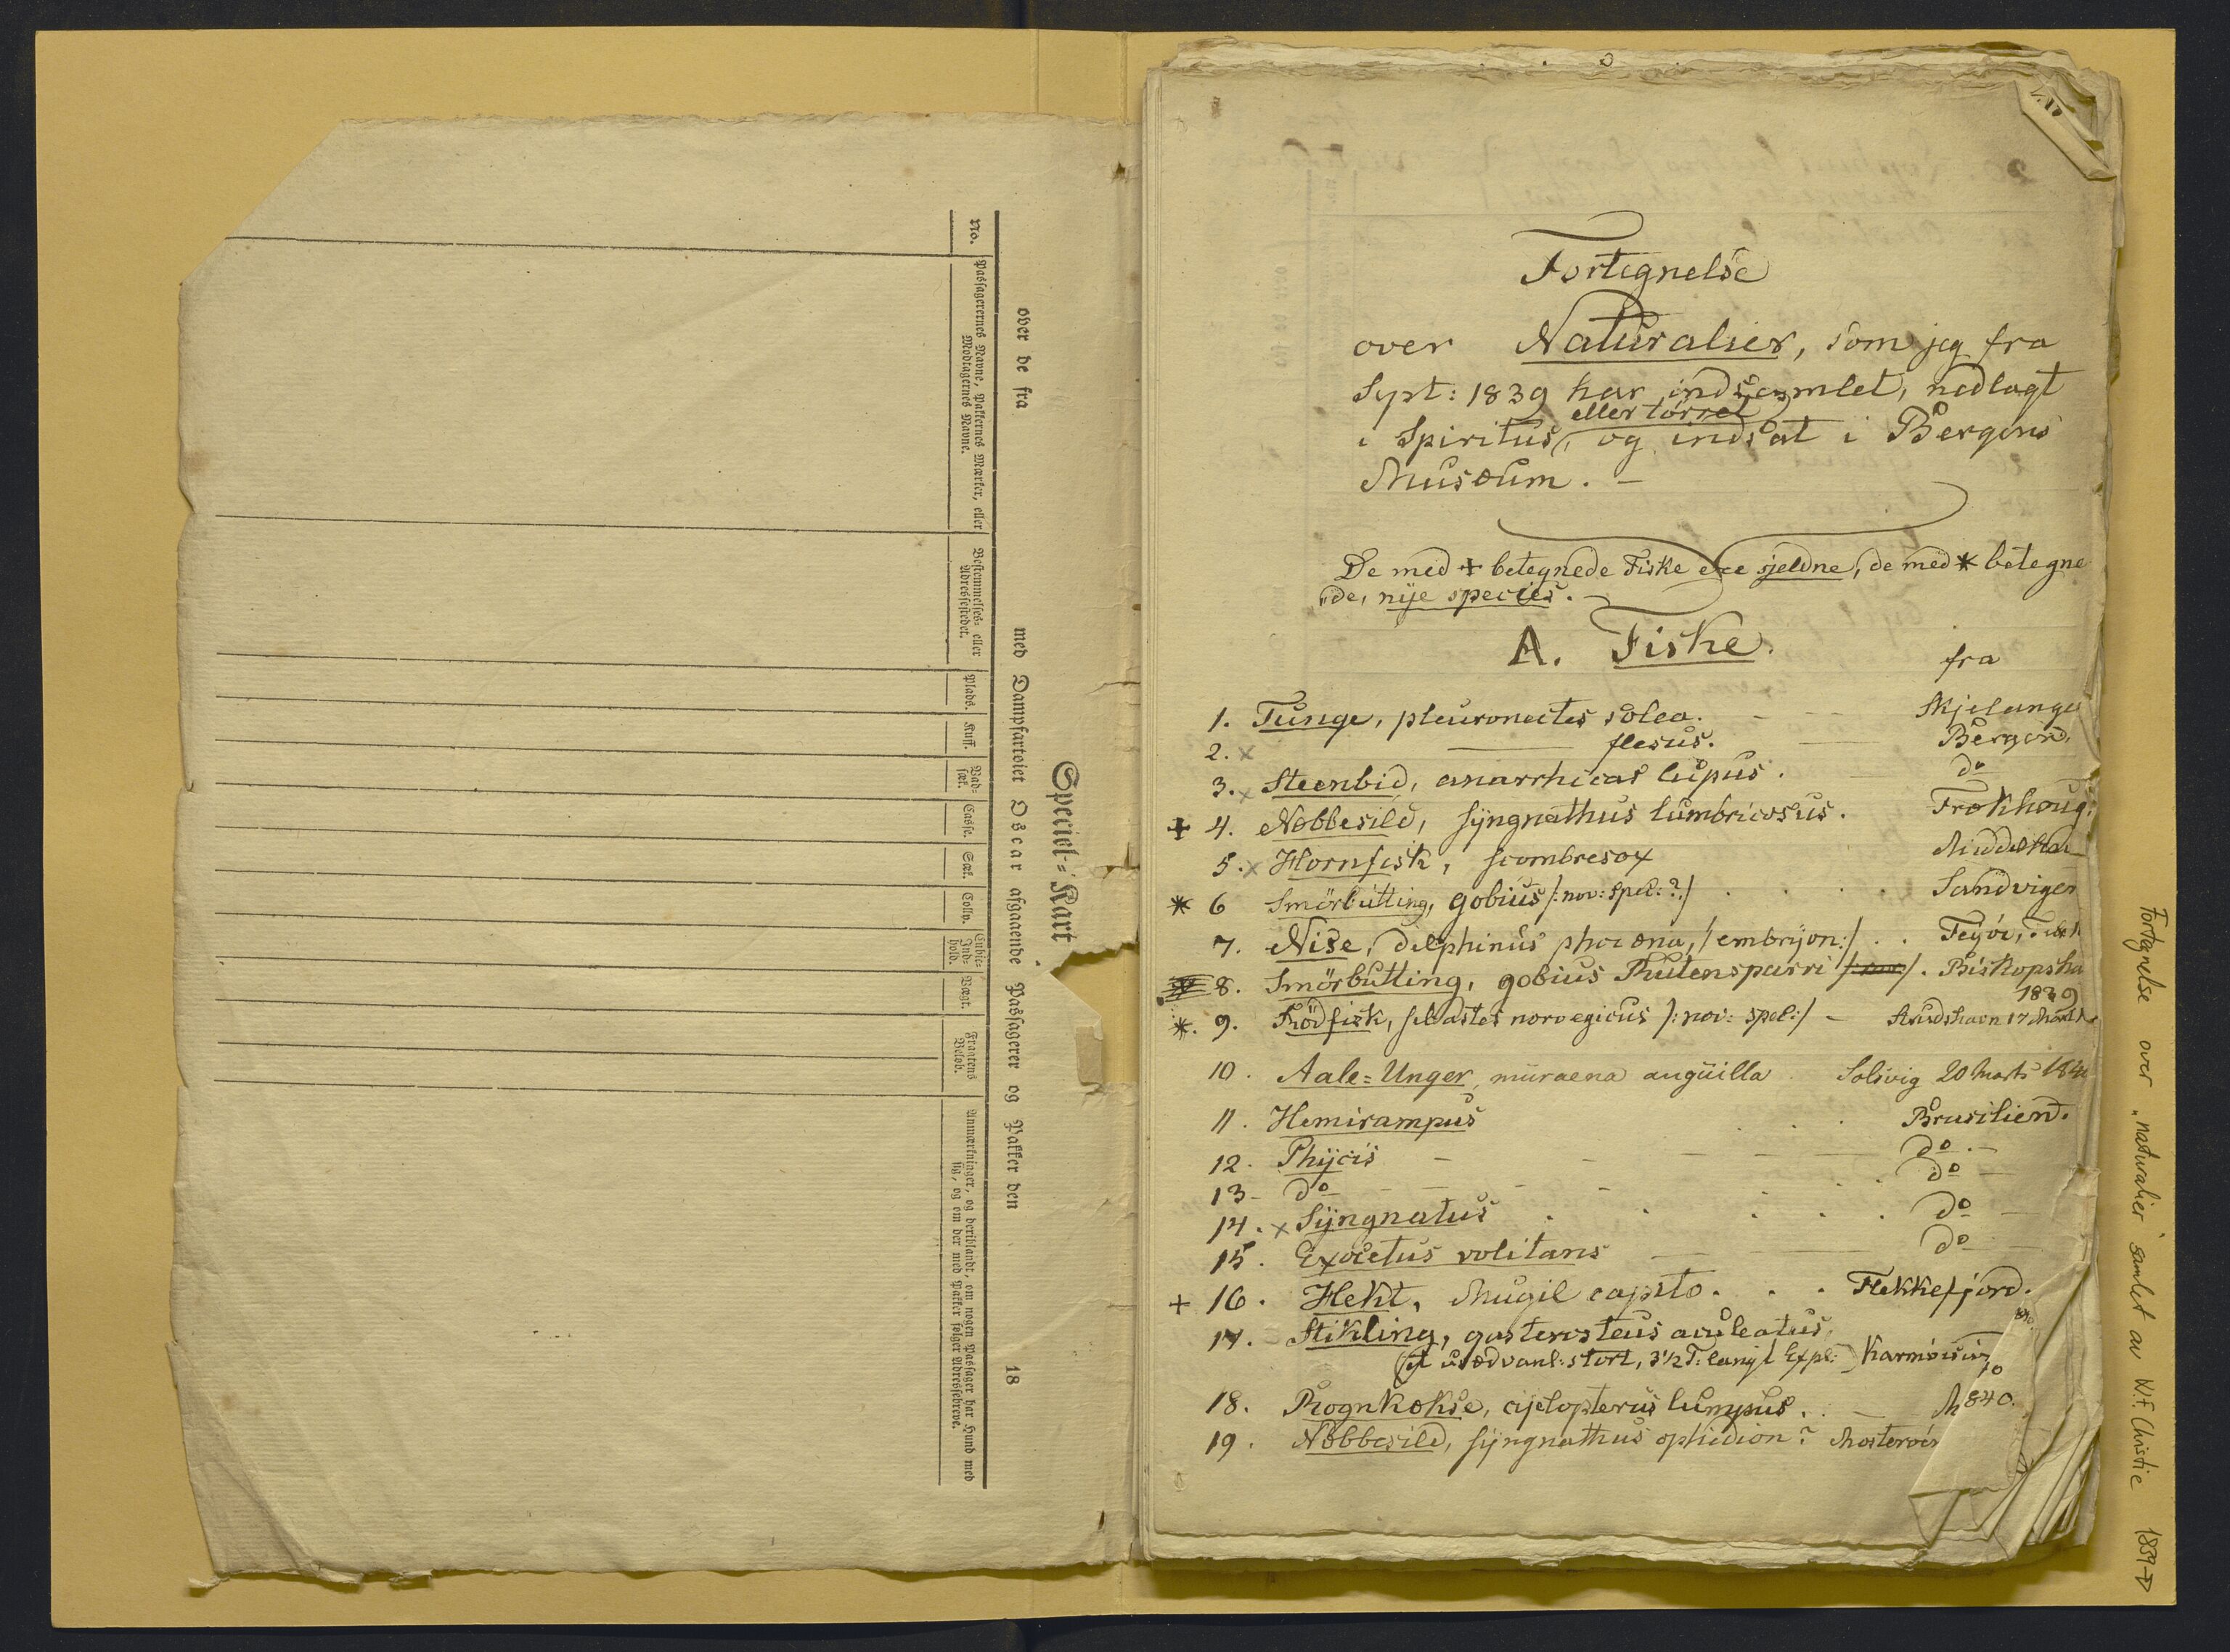 Speciel-Kart
over de fra med Dampfartøiet Oscar afgaaende Passagerer og Pakker den 18
No.
Passagerernes Navne, Pakkernes Mærker, eller
Modtagernes Navne.
Bestemmelses- eller
Adressestedet.
Plads.
Kuff.
Vad-
sæk.
Casse.
Sæk.
Colly.
Cubic-
Ind-
hold.
Vægt.
Fragtens
Beløb.
Anmærkninger, og deriblandt, om nogen Passager har Hund med
sig, og om der med Pakker følger Adressebreve.
Fortegnelse
over Naturalier, som jeg fra
Sept: 1839 har indsamlet, nedlagt
eller törret
i Spiritus, og indsat i Bergens
Museum. –
De med + betegnede Fiske ere sjeldne, de med * betegne
de, nye species.
A. Fiske.
fra
1. Tunge, pleuronectes solea. Skjelanger
2. x flesus. Bergen.
3. x Steenbid, anarrhicas lupus. do
+ 4. Nobbesild, syngnathus lumbricosus.
5. x Hornfisk, scombresox
* 6 Smörbutting, gobius /: nov: spec: ?/ Sandvigen
7. Nise, delphinus phocæna, / embryon:/ Feyöe,
8. Smörbutting, gobius Rutensparri Biskopsha
1839
*. 9. Rödfisk, sebastes norvegicus /: nov: spec:/ –
10. Aale=Unger, muraena anguilla Solsvig 20 Marts 184
11. Hemirampus Brasilien.
12. Phycis do –
13 – do do –
14. x Syngnatus do –
15. Exocetus volitans do
+ 16. Hekt, Mugil capito. Flekkefjord.
17. Stikling, gasterosteus aculeatus,
(et usædvanl: stort, 3½ T: langt Expl:)
18. Rognkokse, cyclopterus lumpus. 840.
19. Nobbesild, syngnathus ophidion? Mosteröen
Fortegnelse over "naturalier" samlet av W.F. Christie 1839→